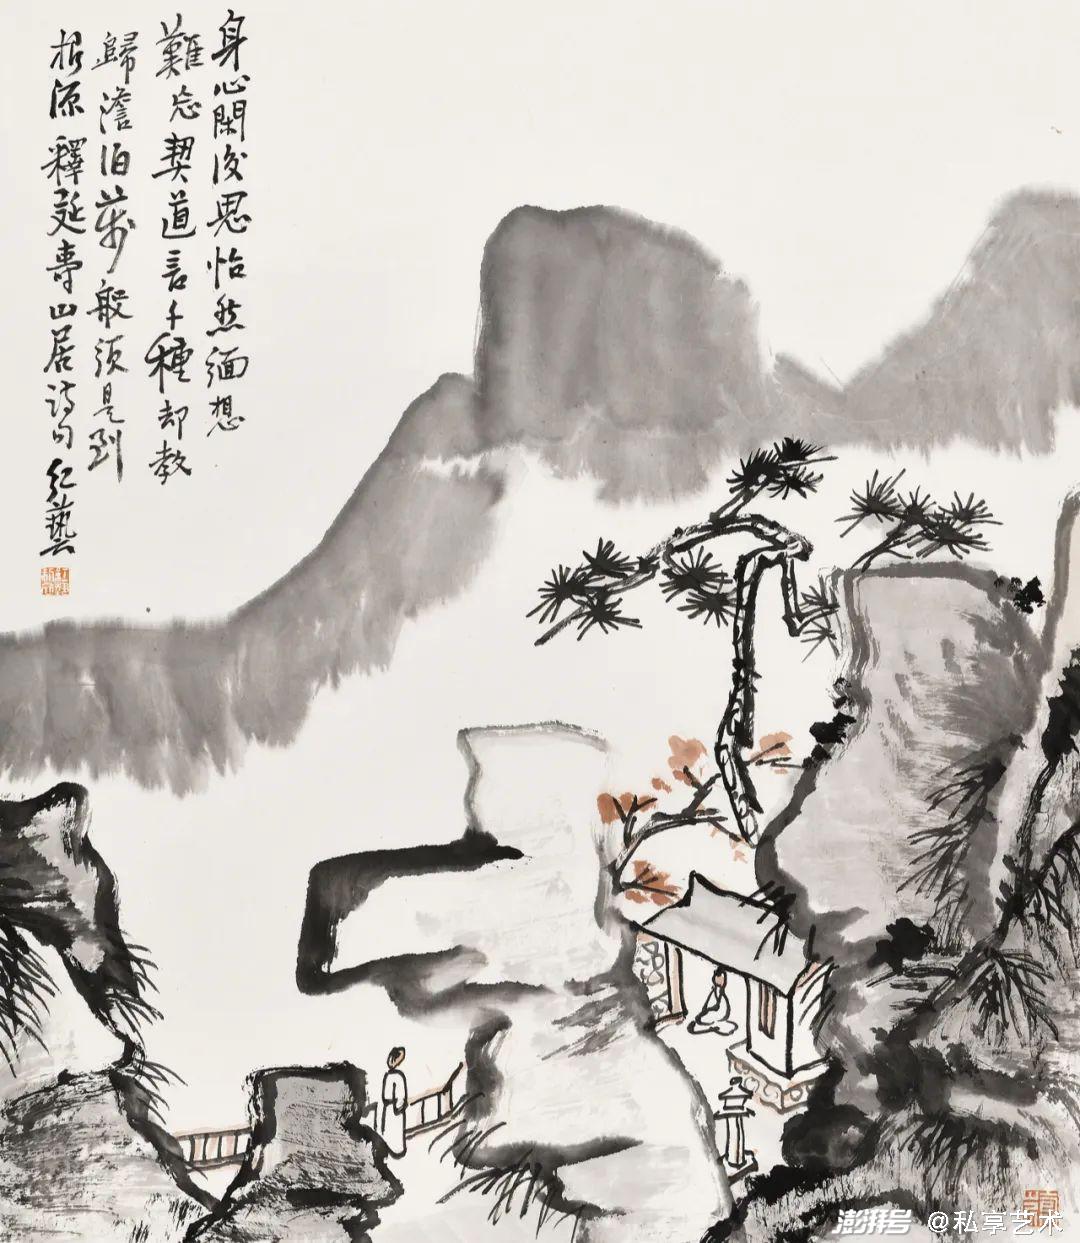 身心閑後思怡然緬想
難忘契道言千種却教
歸澹泊萬般須是到
根源釋延壽山居詩句紅藝
澎湃号 @私享艺术